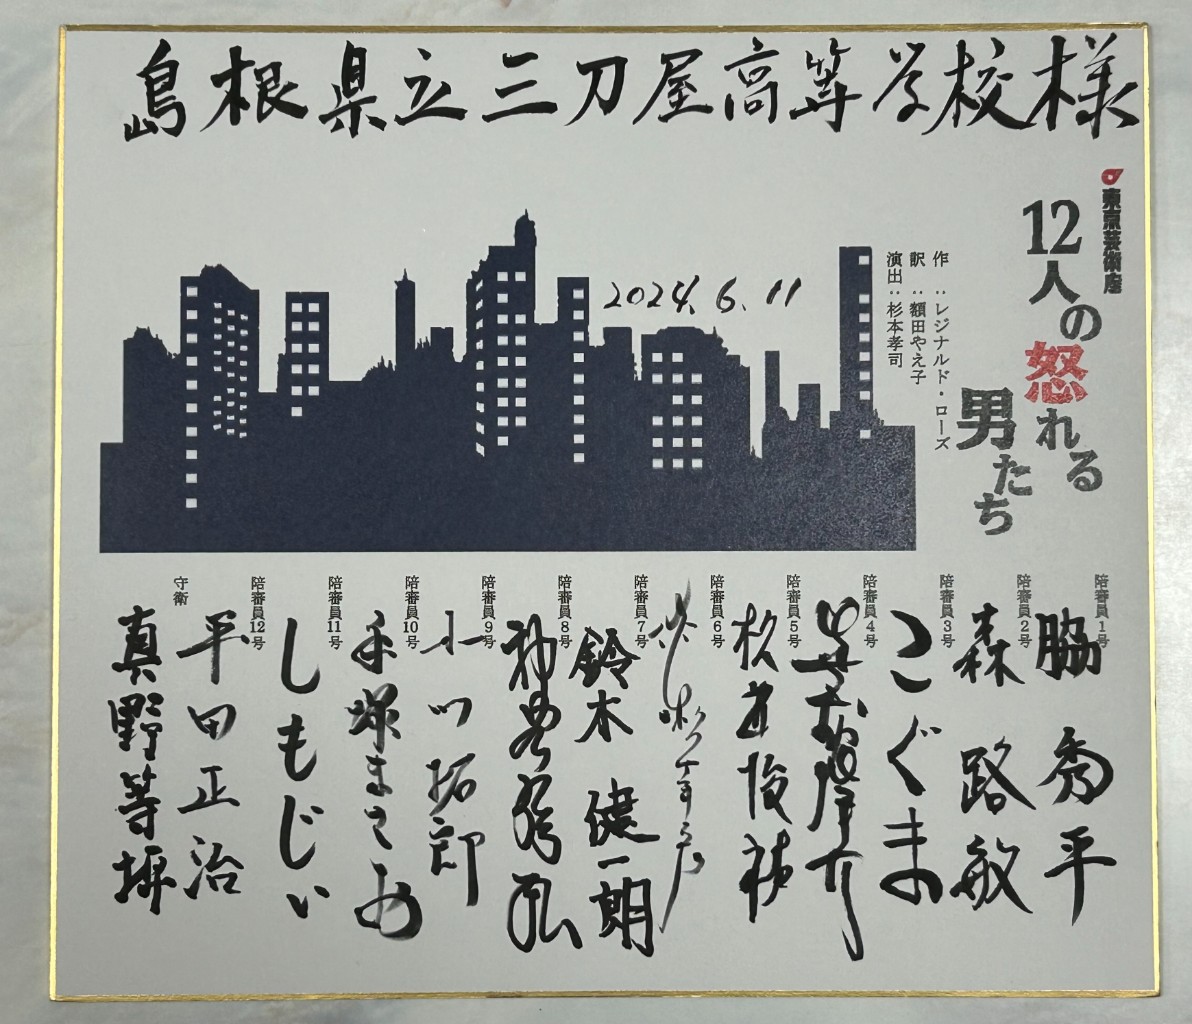 島根県立三刀屋高等学校様
東京芸術座
12人の怒れる男たち
作：レジナルド・ローズ
訳：額田やえ子
演出：杉本孝司
2024.6.11
陪審員1号
脇秀平
陪審員2号
森路敏
陪審員3号
こぐま
陪審員4号
陪審員5号
陪審員6号
陪審員7号
鈴木健一朗
陪審員8号
陪審員9号
小川拓郎
陪審員10号
手塚まさお
陪審員11号
しもじい
陪審員12号
平田正治
守衛
真野等